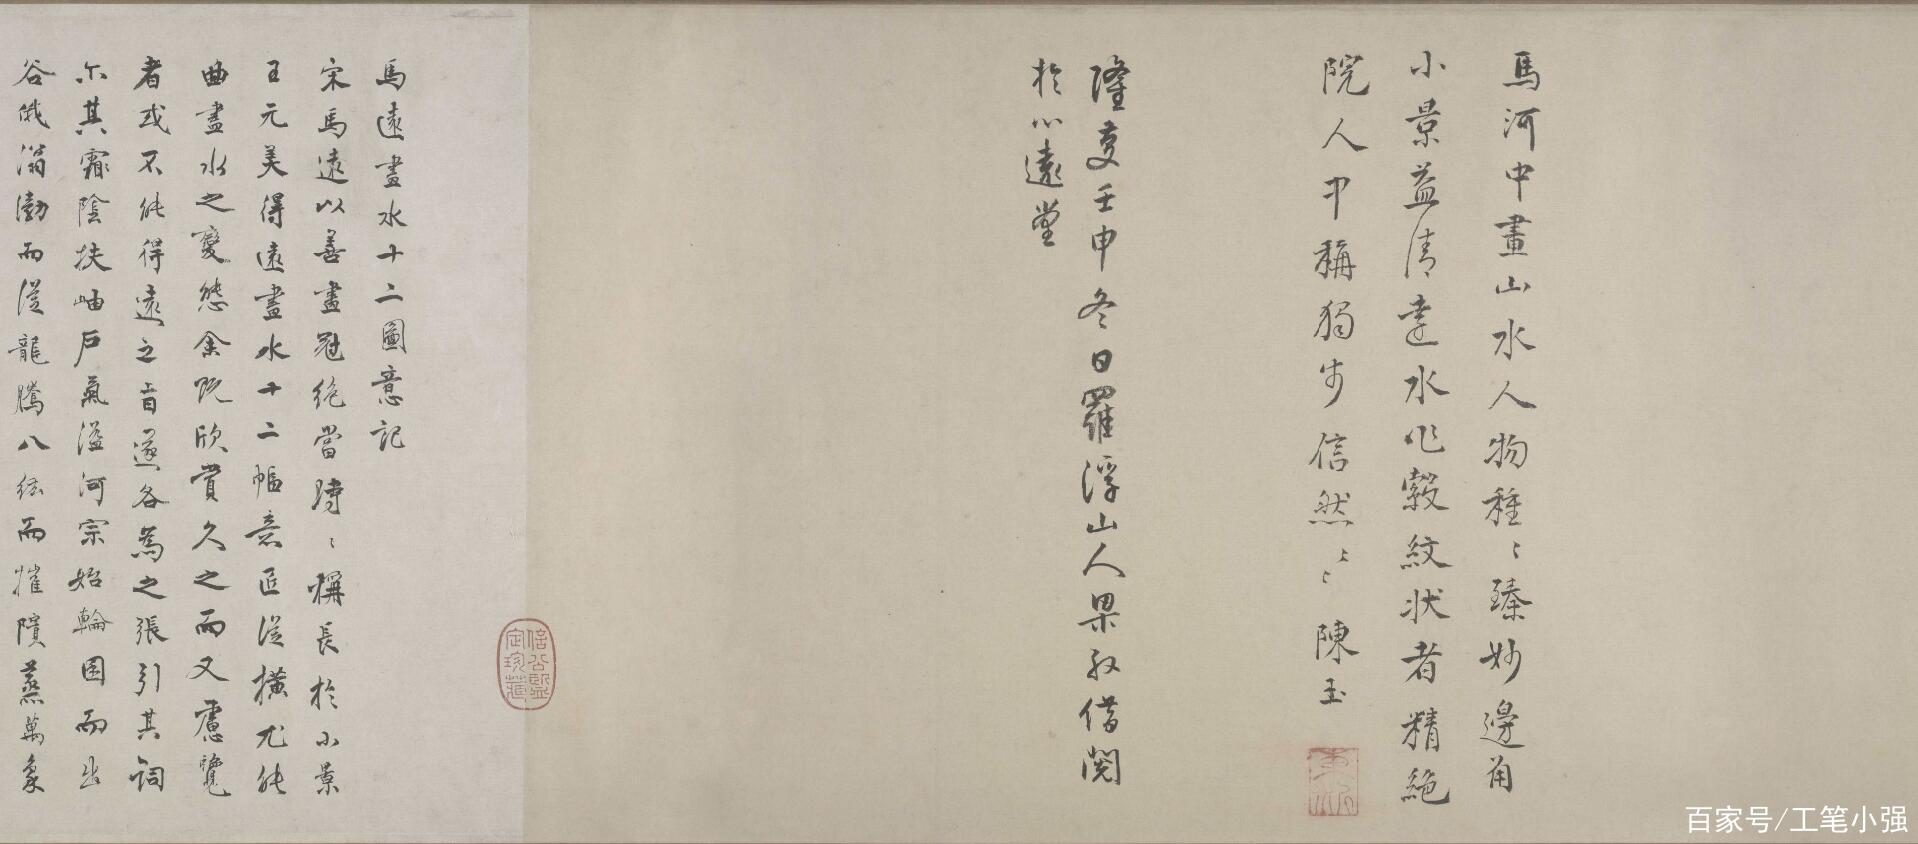 馬河中畫山水人物種〻臻妙邊角
小景益清達水作縠紋状者精絕
院人中稱獨步信然〻〻陳玉
隆慶壬申冬日羅浮山人果致借閱
於心遠堂
馬遠畫水十二圖意記
宋馬遠以善畫冠絶當時〻稱長於小景
王元美得遠畫水十二幅意匠従橫尤能
曲盡水之變態余既欣賞久之而又慮覽
者或不能得遠之旨遂各為之張引其詞
尒其霿陰扶岫戶氣溢河宗始輪囷而出
谷俄滃渤而従龍騰八紘而摧隤蒸萬象
信公鑒
定珍藏
百家号/工笔小强